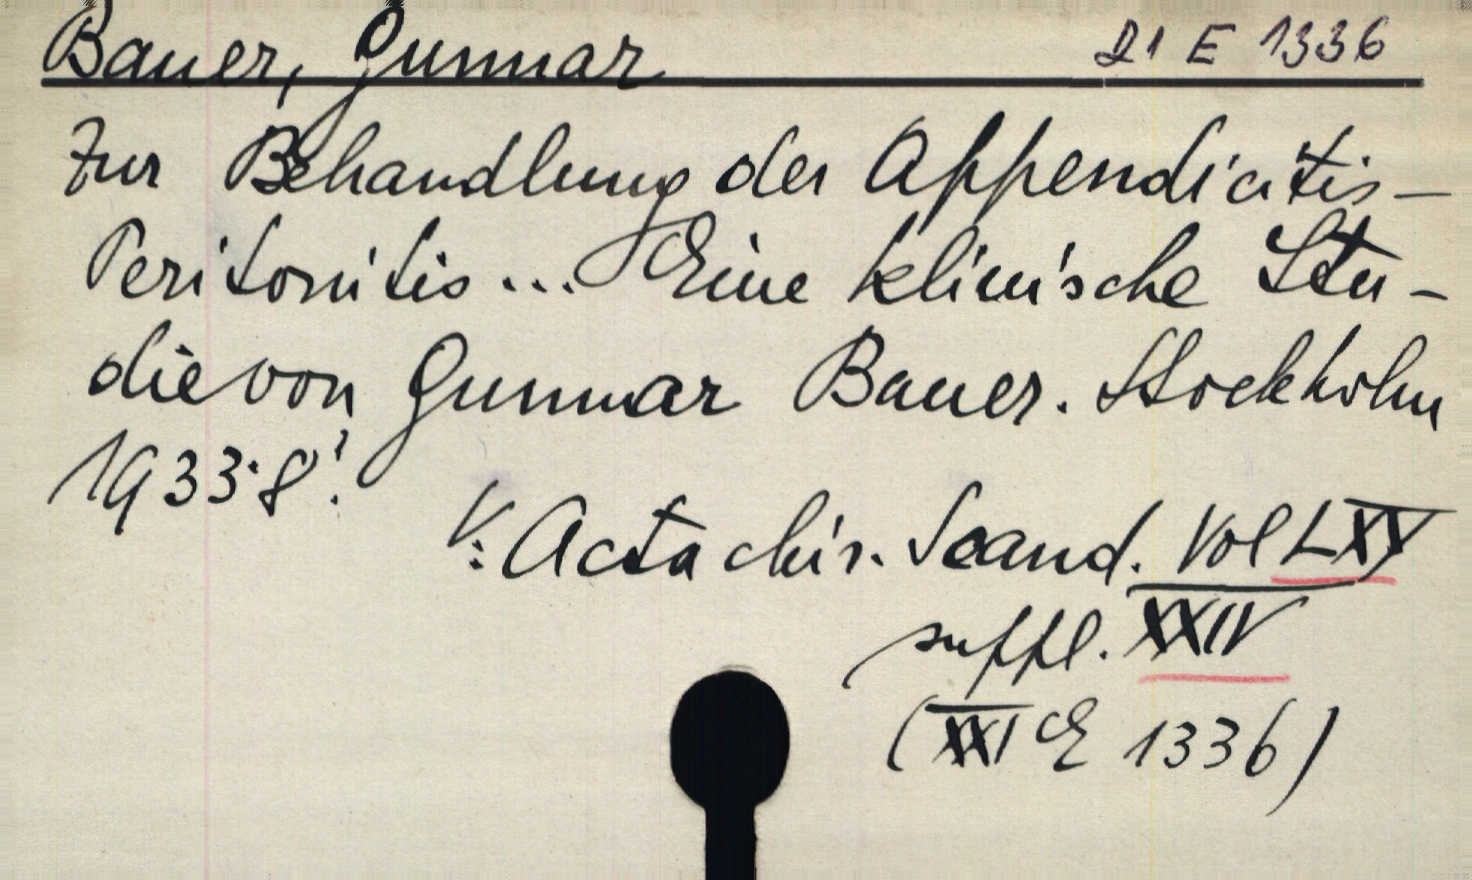 Bauer, Gunnar 21 E 1336
Zur Behandlung der Appendicitis-
Peritonitis... Eine klinische Stu-
die von Gunnar Bauer. Stockholm
1933. 8°.
V: Acta chir. Scand. Vol LXXV
suppl. XXIV
(XXI E 1336)